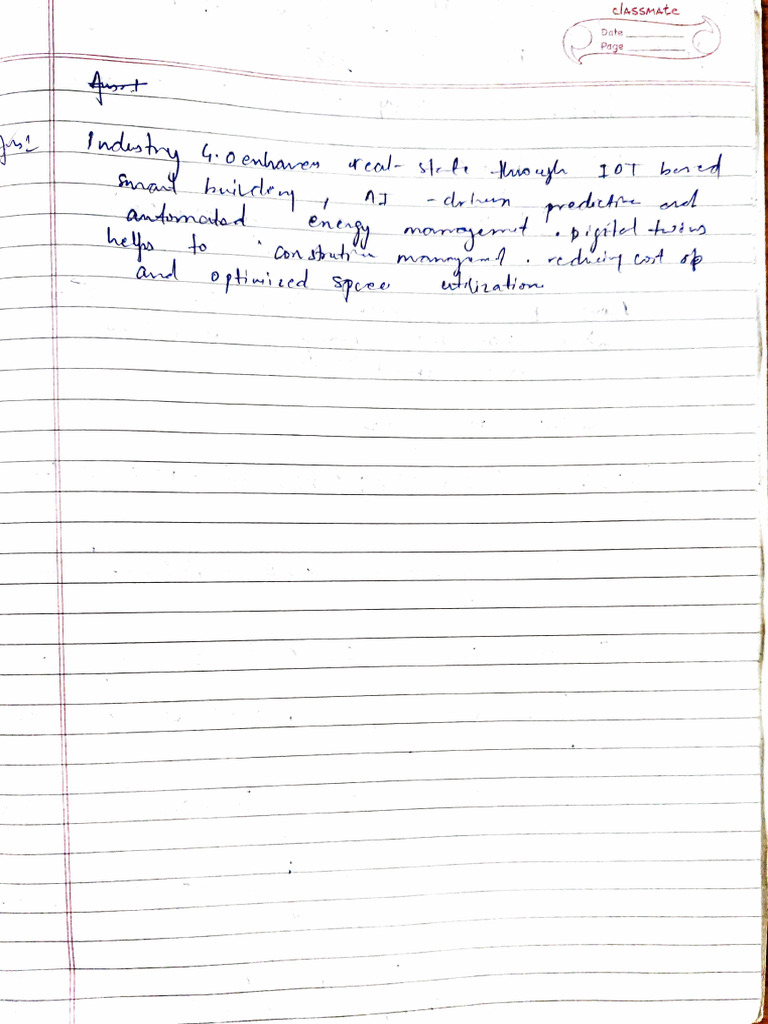 classmate
Date
Page
Ans 1
Ans 1 Industry 4.0 enhances real-state through IOT based
smart building, AI -driven predictive and
automated energy management . Digital twins
helps to construction management . reducing cost op
and optimized space utilization